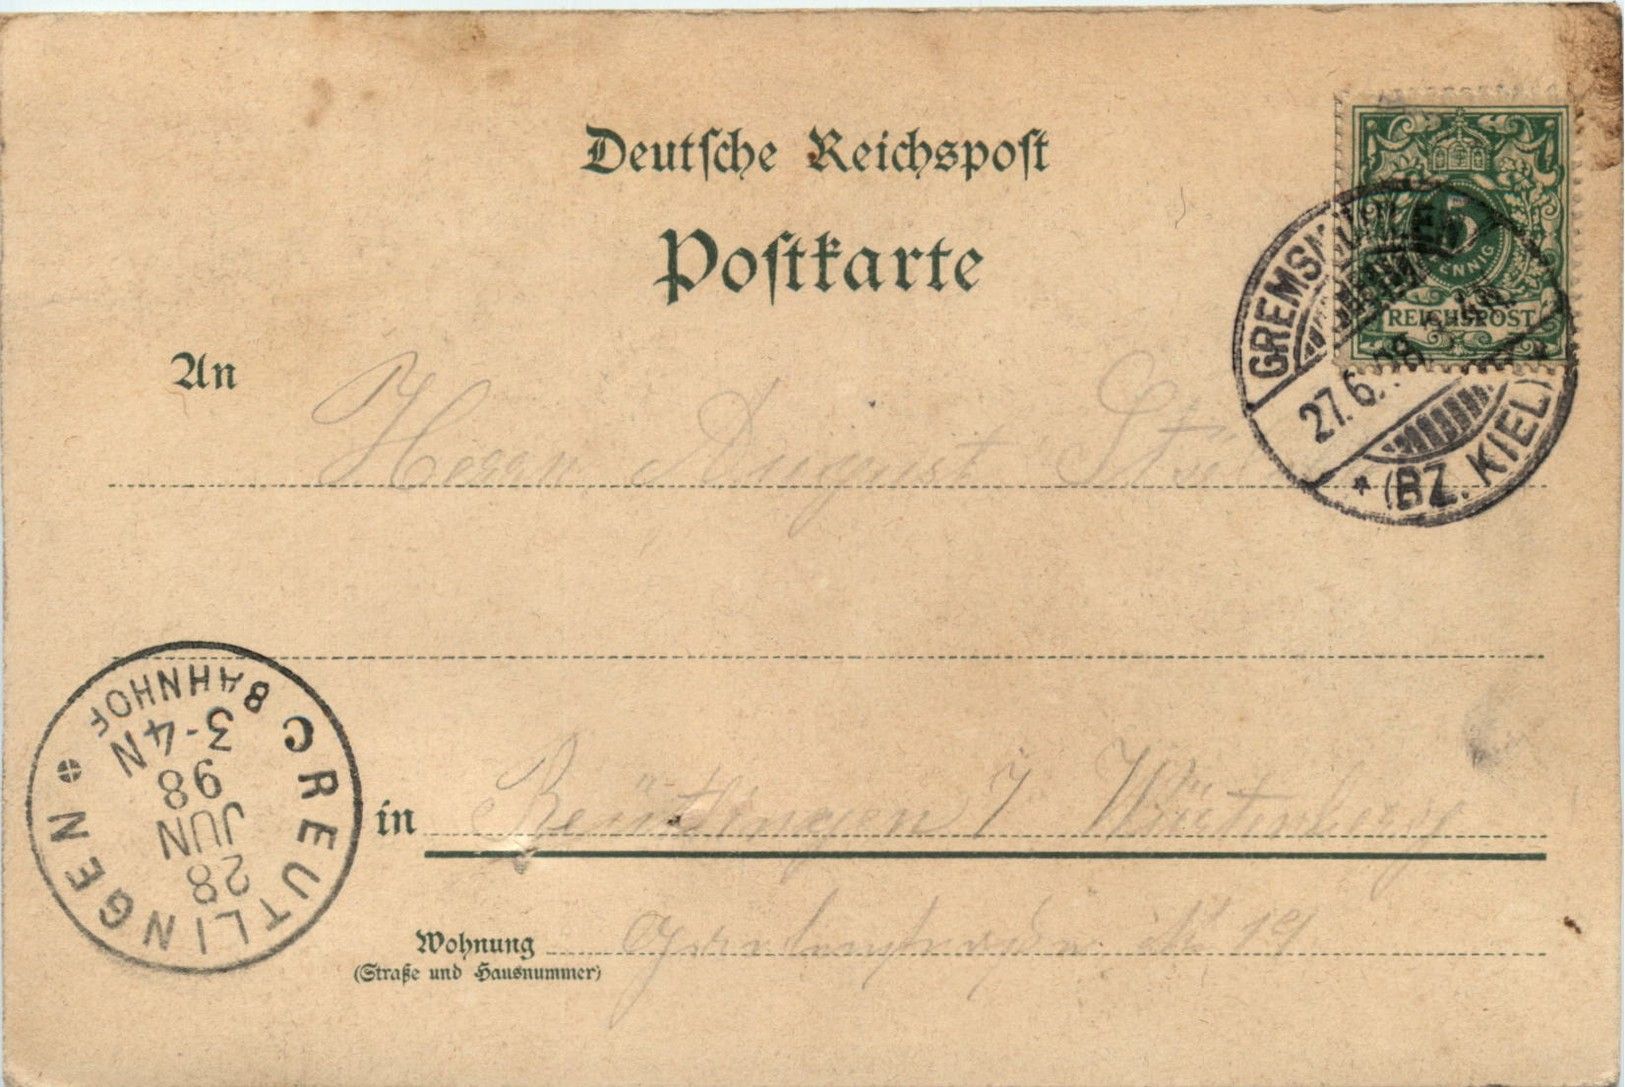 Deutsche Reichspost
Postkarte
5
PFENNIG
REICHSPOST
GREMSMÜHLEN
27.6.98.
* (BZ. KIEL) *
An Herrn August
in Reutlingen / Würtenberg
Wohnung Gartenstraße № 19
(Straße und Hausnummer)
REUTLINGEN
C
BAHNHOF
3-4N
98
JUN
28